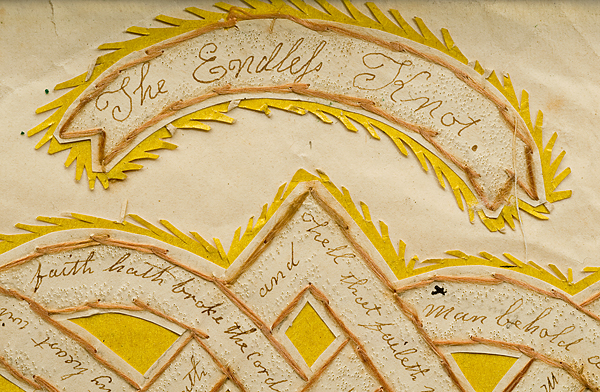 The Endleſs Knot
faith hath broke the cord
and
hell that faileth
man behold
heart